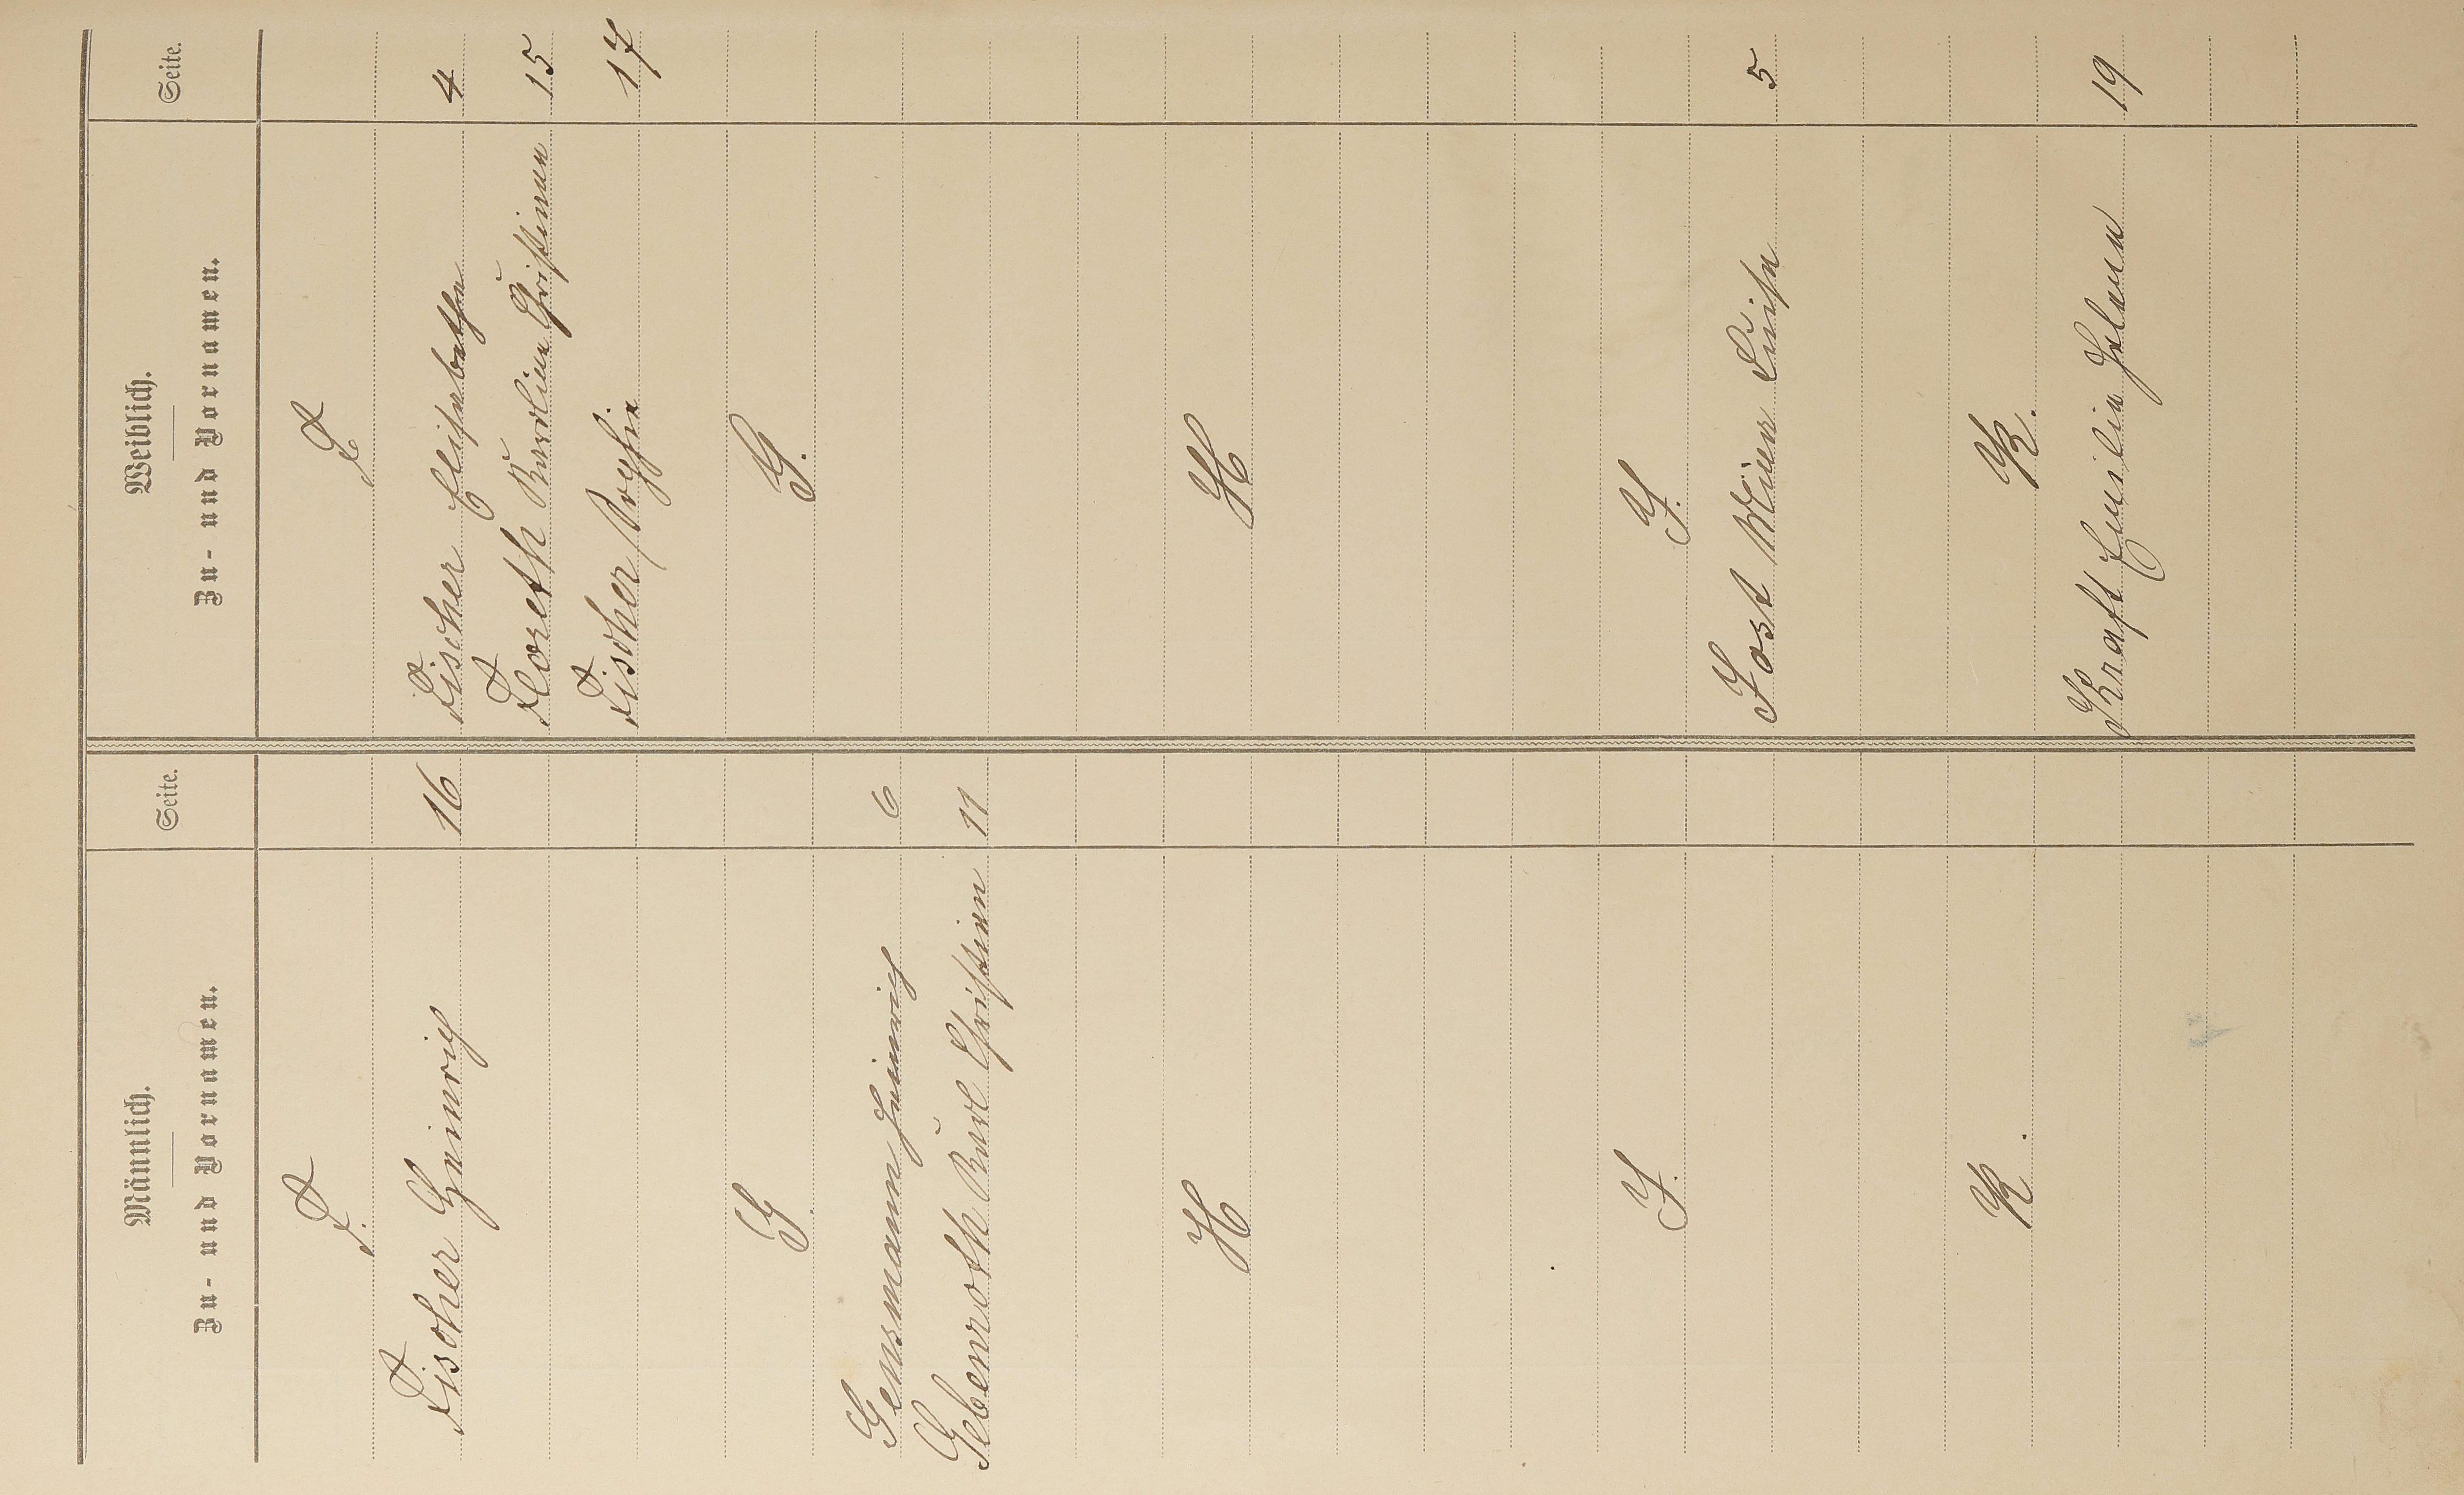 Männlich.
Zu- und Vornamen.
Seite.
F.
Fischer Heinrich 16
G.
Gensmann Heinrich 6
Gebenroth Karl Christian 11
H
J.
K.
Weiblich.
Zu- und Vornamen.
Seite.
F.
Fischer Elisabetha 4
Floreth Karoline Christiana 15
Fischer Sophie 17
G.
H
J.
Jost Luise 5
K.
Kraft Emilie Helena 19